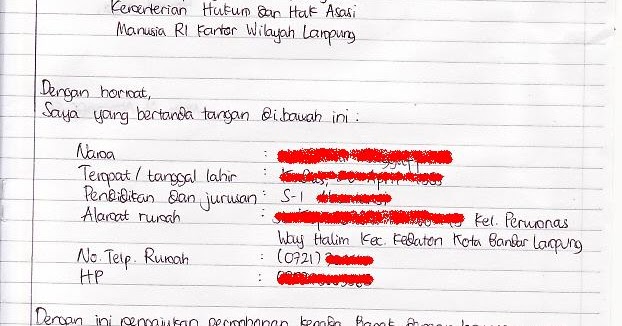 Kementerian Hukum dan Hak Asasi
Manusia RI Kantor Wilayah Lampung
Dengan hormat,
Saya yang bertanda tangan dibawah ini :
Nama :
Tempat / tanggal lahir :
Pendidikan dan jurusan : S-1
Alamat rumah : Kel. Perumnas
Way Halim Kec. Kedaton Kota Bandar Lampung
No. Telp. Rumah : (0721)
HP :
Dengan ini mengajukan permohonan